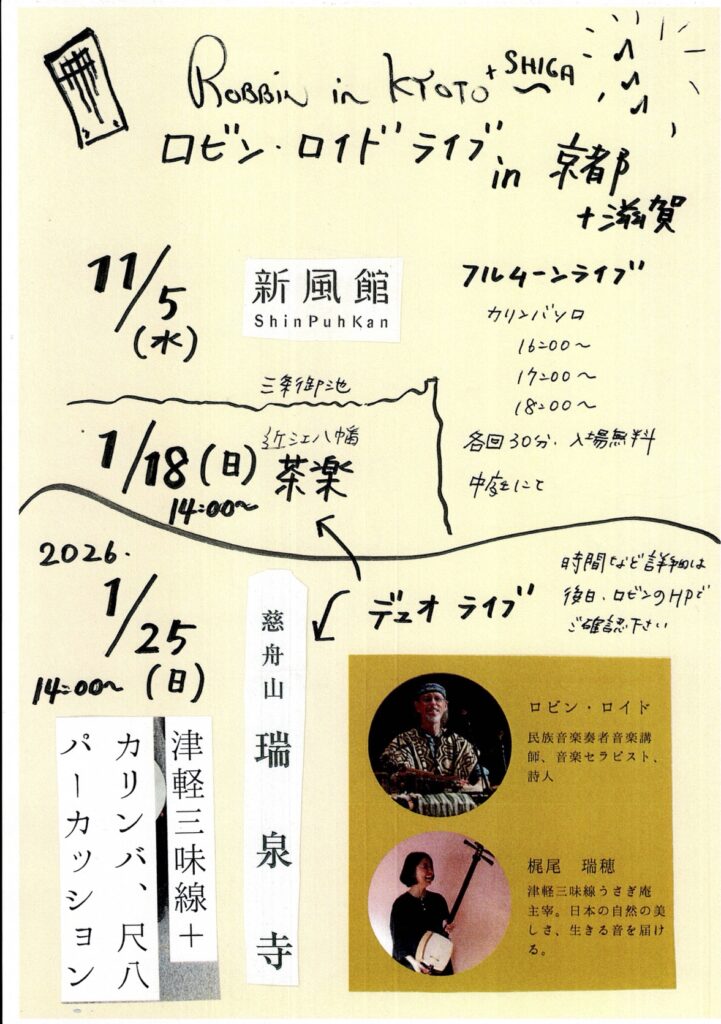 ROBBIN in KYOTO + SHIGA
ロビン・ロイド ライブ in 京都
+滋賀
11/5
(水)
新風館
ShinPuhKan
フルムーンライブ
カリンバソロ
16:00〜
17:00〜
18:00〜
各回30分.入場無料
中庭にて
三条御池
1/18(日)
14:00〜
近江八幡
茶楽
2026.
1/25
14:00〜(日)
デュオ ライブ
時間など詳細は
後日、ロビンのHPで
ご確認下さい
慈舟山 瑞泉寺
津軽三味線+
カリンバ、尺八
パーカッション
ロビン・ロイド
民族音楽奏者音楽講
師、音楽セラピスト、
詩人
梶尾 瑞穂
津軽三味線うさぎ庵
主宰。日本の自然の美
しさ、生きる音を届け
る。